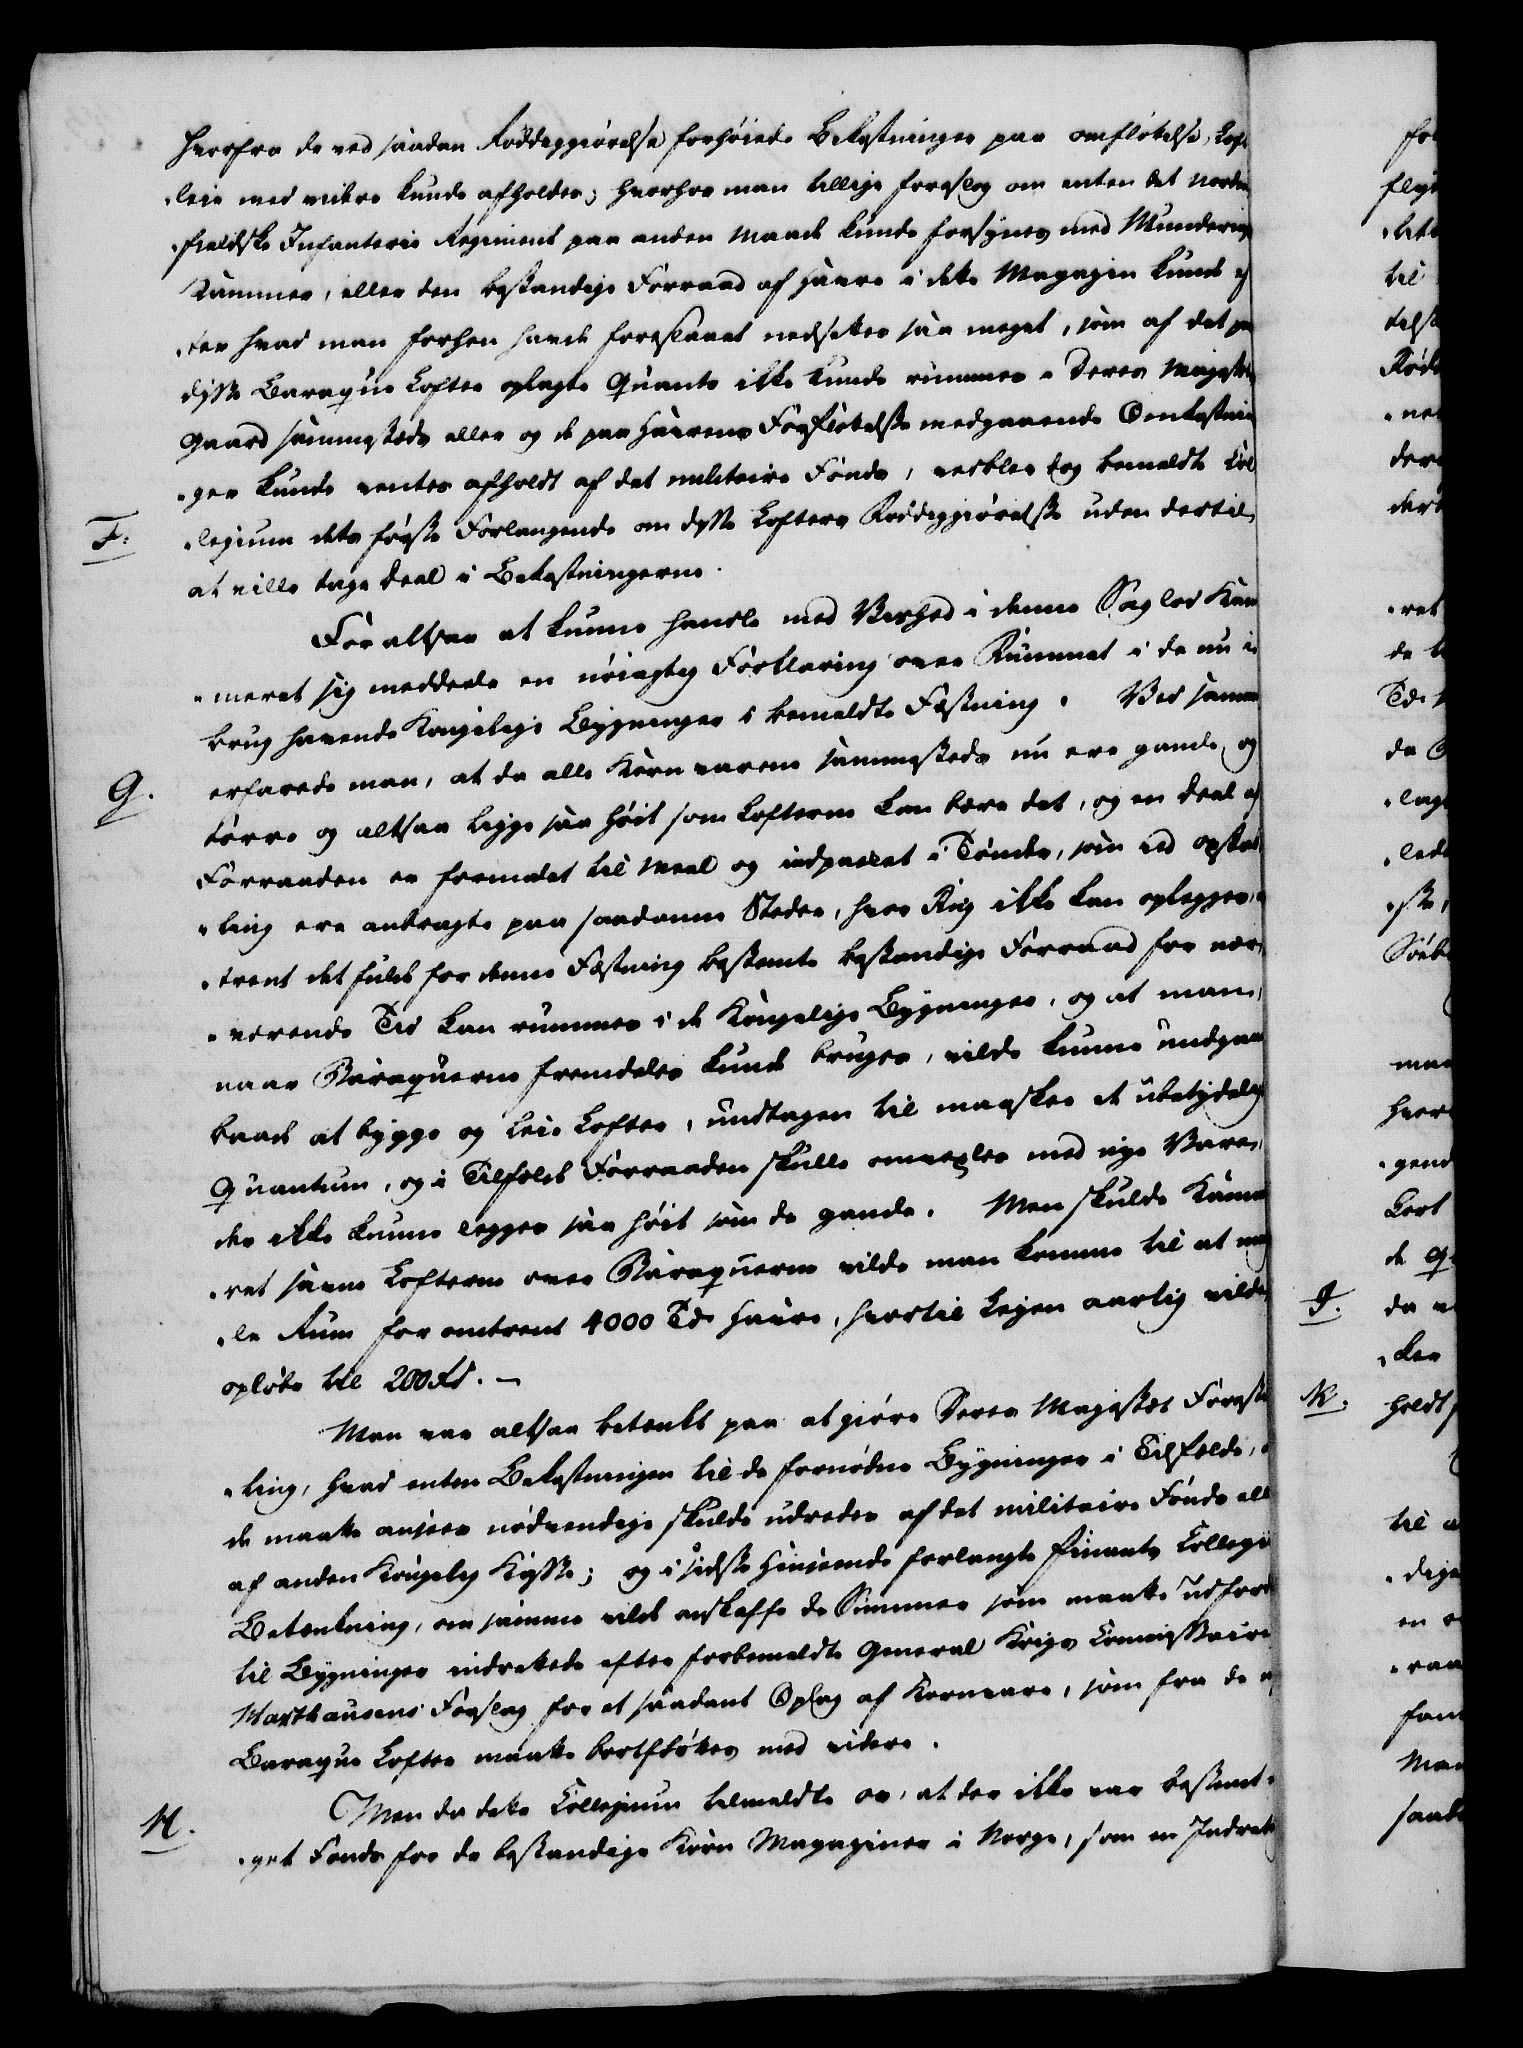 hvorfra de ved saadan Rüddeggiörelse forhöiede Bekostninger paa omflötelse, Loft
-leie med videre kunde afholdes; hvorhos man tillige foreslog om enten det norden
-fieldske Infanterie Regiment paa anden Maade kunde forsynes med Munderings
Kammer, eller den bestandige Forraad af Havre i dette Magazin kunde ef
-ter hvad man forhen havde foreslaaet nedsættes saa meget, som af det paa
disse Baraque Lofter oplagte Quanto ikke kunde rummes i Deres Majestets
Gaard sammesteds eller og de paa Havrens Forflötelse medgaaende Omkostnin
-ger kunde ventes afholdt af det militaire Fonds, vedblev dog bemeldte Col
F: -legium dets første Forlangende om disse Lofters Röddeggiörelse uden dertil
at ville tage Deel i Bekostningerne.
For altsaa at kunne handle med Vished i denne Sag lod Kam
-meret sig meddeele en nöiagtig Forklaring over Rummet i de nu i
brug havende Kongelige Bygninger i bemeldte Fæstning. Ved samme
G. erfarede man, at da alle Kornvarene sammesteds nu ere gamle og
törre og altsaa ligge saa höit som Lofterne kan bære det, og en Deel af
Forraaden er formalet til Meel og indpacket i Tönder, som ved opstab
-ling ere anbragte paa saadanne Steder, hvor Rug ikke kan oplegges, om
-trent det fulde for denne Fæstning bestemte bestandige Forraad for nær-
-værende Tid kan rummes i de Kongelige Bygninger, og at man,
naar Baraquerne fremdeles kunde bruges, vilde kunne undgaae
baade at bygge og leie Lofter, undtagen til maaskee et ubetydeligt
Quantum, og i Tilfælde Forraaden skulle omvexles med nye Vare,
der ikke kunne legges saa höit som de gamle. Men skulde Kamme
-ret savne Lofterne over Baraquerne vilde man komme til at mang
-le Rum for omtrent 4000 Tdr Havre, hvortil Leyen aarlig vilde
oplöbe til 200 Rd. —
Man var altsaa betænkt paa at giöre Deres Majestet Forestil
-ling, hvad enten Bekostningen til de fornödne Bygninger i Tilfælde,
de maatte ansees nödvendige skulde udredes af det militaire Fonds eller
af anden Kongelig Kasse; og i sidste Henseende forlangte Finants Collegii
Betænkning, om samme vilde anskaffe de Summer som maatte udfordres
til Bygninger indrettede efter forbemeldte General Krigs Commissaire
Marthausens Forslag for et saadant Oplag af Kornvare, som fra de
Baraque Lofter maatte bortflöttes med videre.
H. Men da dette Collegium tilmeldte os, at der ikke var bestemt
-get Fonds for de bestandige Korn Magaziner i Norge, som en Indret
I.
K.